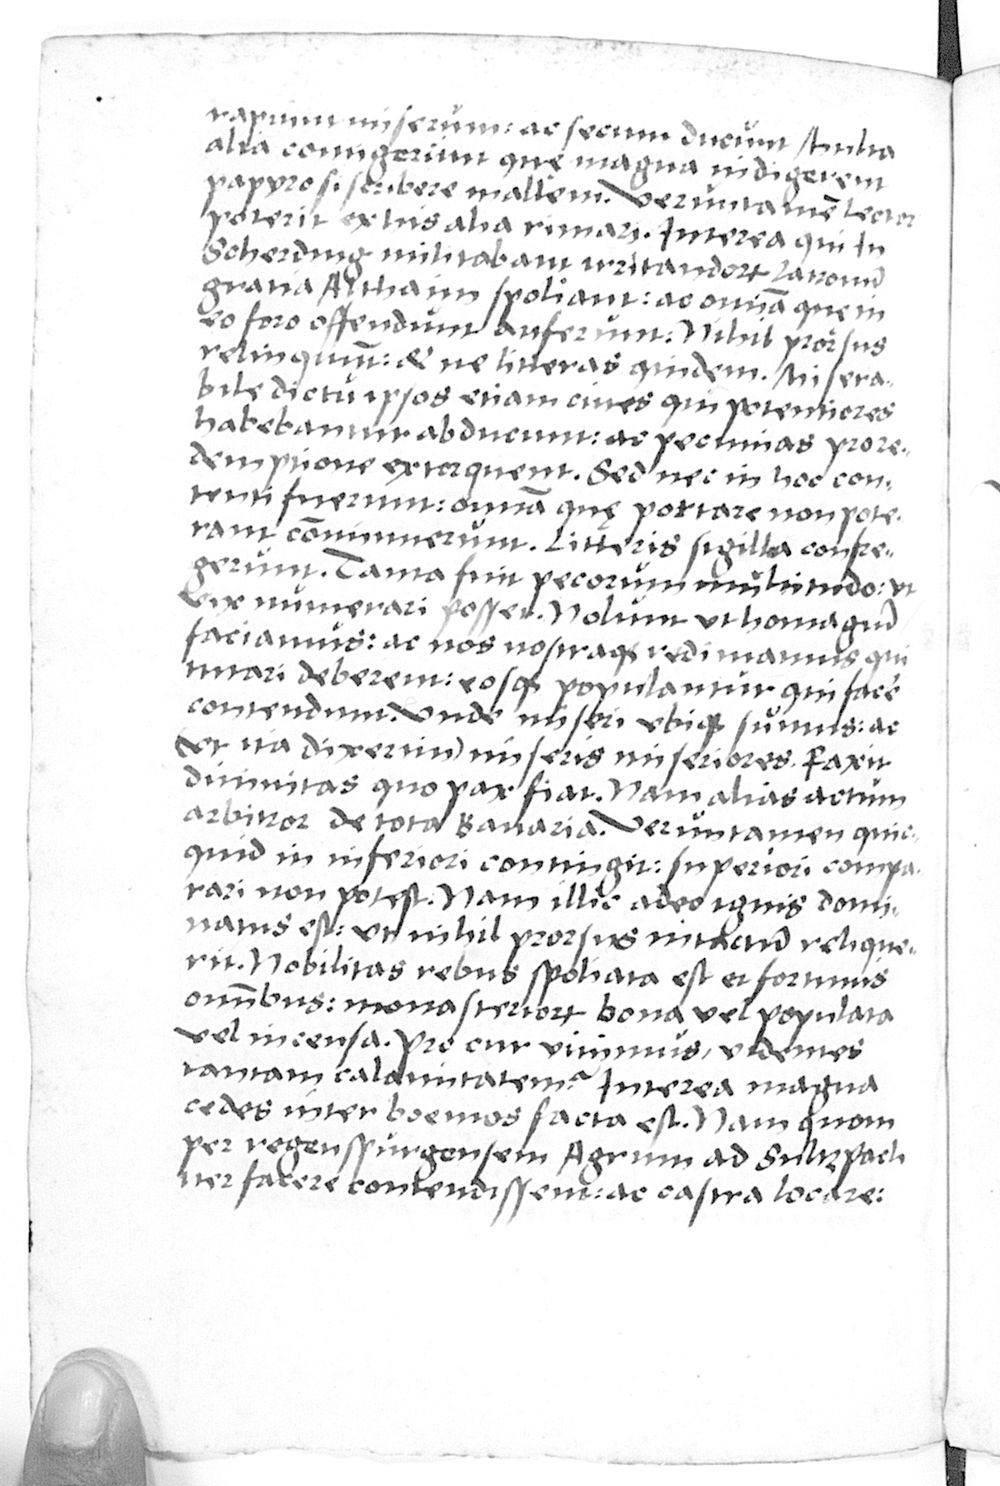 rapiunt miserum: ac secum ducunt Multa
alia contigerunt que magna indigerent
papyro si scribere mallem. Veruntamē lector
poterit ex his alia rimari. Interea qui in
Scherding militabant irritandorꝝ latronū
gratia Althaim spoliant: ac omīa que in
eo foro offendunt auferunt: Nihil prorsus
relinquūt: & ne litteras quidem. Misera-
bile dictu ipsos etiam ciues qui potentiores
habebantur abducunt: ac pecunias pro re-
demptione extorquent. Sed nec in hoc con-
tenti fuerunt: omīa quę portare non pote-
rant cōminuerunt. Litteris sigilla confre-
gerunt. Tanta fuit pecorum multitudo: vt
vix numerari posset. Nolunt vt homagiū
faciamus: ac nos nostraqꝫ redimamus qui
tutari deberent: eosqꝫ populantur qui facē
contendunt. Vnde miseri vbiqꝫ sumus: ac
(vt ita dixerim) miseris miseriores. Faxit
diuinitas quo pax fiat. Nam alias actum
arbitror de tota Bauaria. Veruntamen quic-
quid in inferiori contingit: superiori compa-
rari non potest. Nam illic adeo ignis domi-
natus est: vt nihil prorsus intactū relique-
rit. Nobilitas rebus spoliata est et fortunis
omībus: monasteriorꝝ bona vel populata
vel incensa. Pro cur viuimus, videntes
tantam calamitatem? Interea magna
cedes inter boemos facta est. Nam quom
per regenspurgensem Agrum ad Sultzpach
iter facere contendissent: ac castra locare: